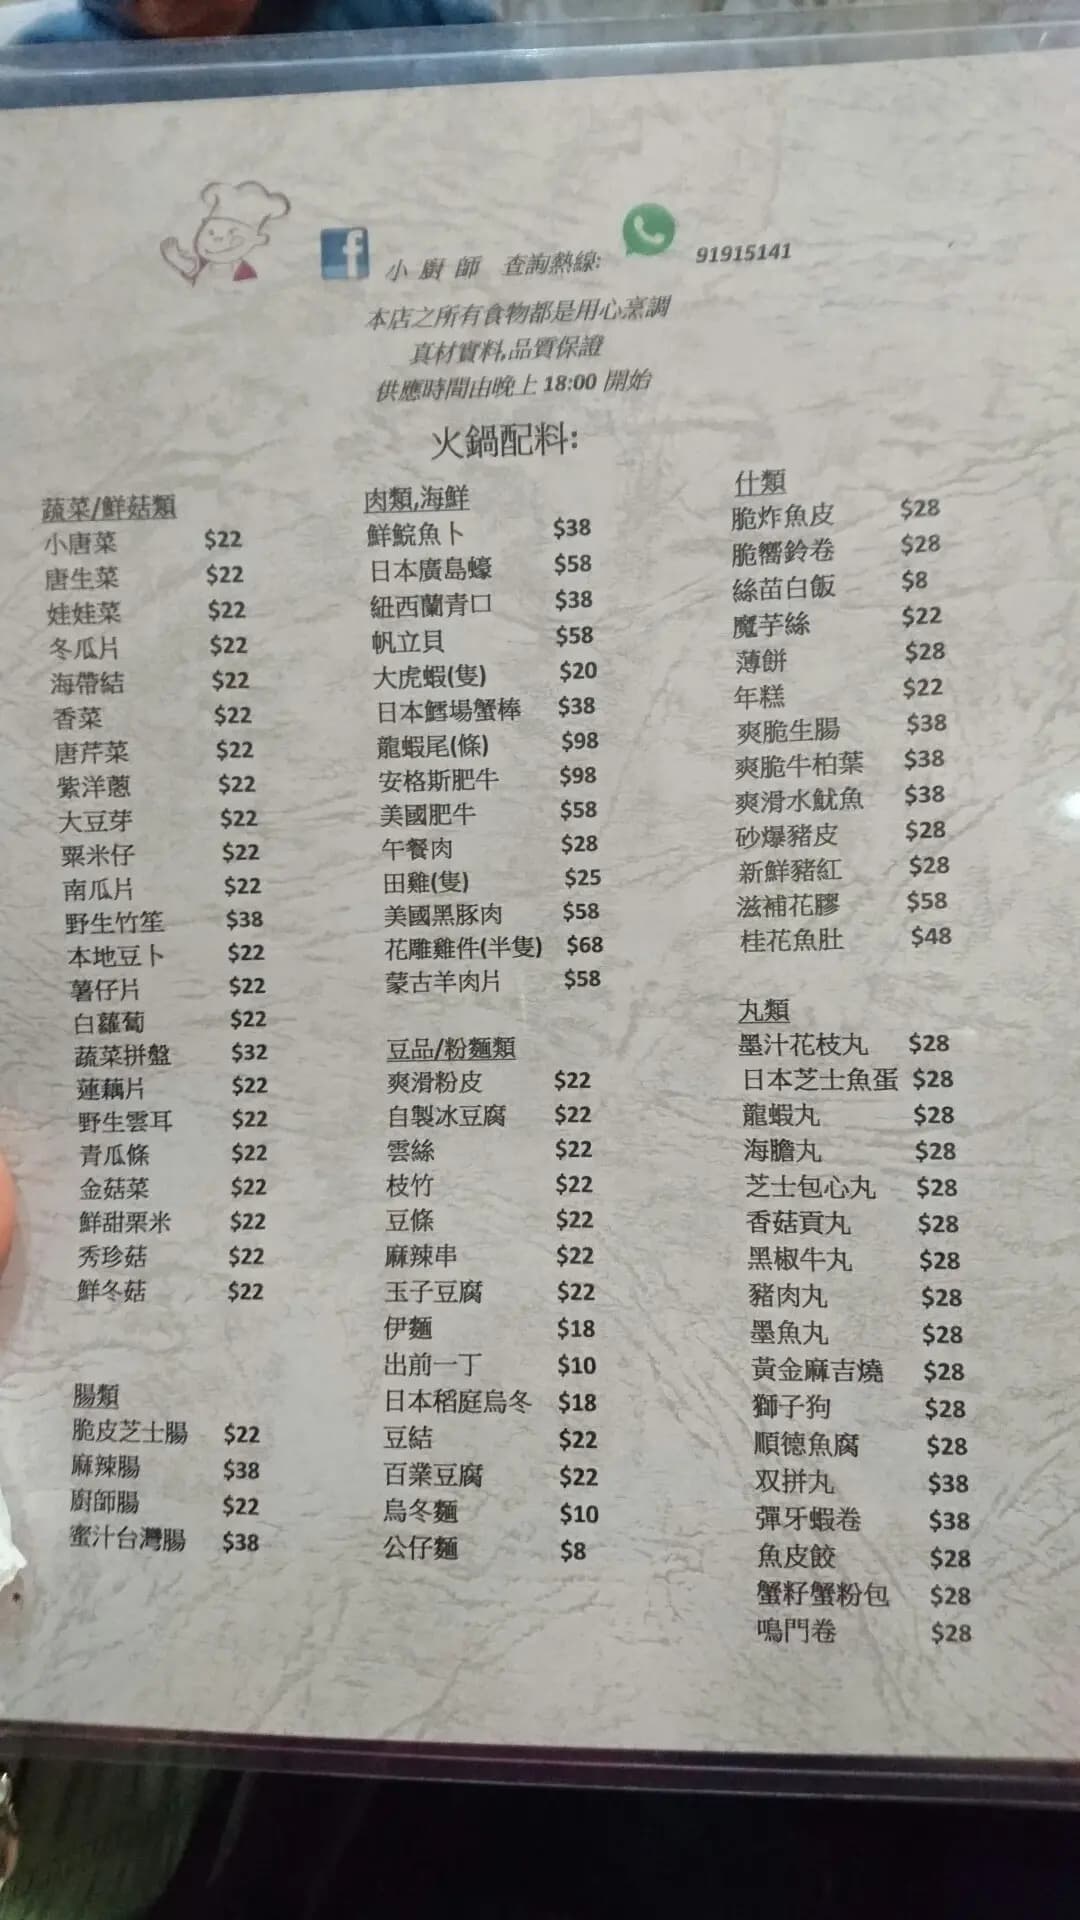 小廚師 查詢熱線: 91915141
本店之所有食物都是用心烹調
真材實料,品質保證
供應時間由晚上 18:00 開始
火鍋配料:
蔬菜/鮮菇類
小唐菜 $22
唐生菜 $22
娃娃菜 $22
冬瓜片 $22
海帶結 $22
香菜 $22
唐芹菜 $22
紫洋蔥 $22
大豆芽 $22
粟米仔 $22
南瓜片 $22
野生竹笙 $38
本地豆卜 $22
薯仔片 $22
白蘿蔔 $22
蔬菜拼盤 $32
蓮藕片 $22
野生雲耳 $22
青瓜條 $22
金菇菜 $22
鮮甜粟米 $22
秀珍菇 $22
鮮冬菇 $22
腸類
脆皮芝士腸 $22
麻辣腸 $38
廚師腸 $22
蜜汁台灣腸 $38
肉類,海鮮
鮮鯇魚卜 $38
日本廣島蠔 $58
紐西蘭青口 $38
帆立貝 $58
大虎蝦(隻) $20
日本鱈場蟹棒 $38
龍蝦尾(條) $98
安格斯肥牛 $98
美國肥牛 $58
午餐肉 $28
田雞(隻) $25
美國黑豚肉 $58
花雕雞件(半隻) $68
蒙古羊肉片 $58
豆品/粉麵類
爽滑粉皮 $22
自製冰豆腐 $22
雲絲 $22
枝竹 $22
豆條 $22
麻辣串 $22
玉子豆腐 $22
伊麵 $18
出前一丁 $10
日本稻庭烏冬 $18
豆結 $22
百業豆腐 $22
烏冬麵 $10
公仔麵 $8
什類
脆炸魚皮 $28
脆嚮鈴卷 $28
絲苗白飯 $8
魔芋絲 $22
薄餅 $28
年糕 $22
爽脆生腸 $38
爽脆牛柏葉 $38
爽滑水魷魚 $38
砂爆豬皮 $28
新鮮豬紅 $28
滋補花膠 $58
桂花魚肚 $48
丸類
墨汁花枝丸 $28
日本芝士魚蛋 $28
龍蝦丸 $28
海膽丸 $28
芝士包心丸 $28
香菇貢丸 $28
黑椒牛丸 $28
豬肉丸 $28
墨魚丸 $28
黃金麻吉燒 $28
獅子狗 $28
順德魚腐 $28
双拼丸 $38
彈牙蝦卷 $38
魚皮餃 $28
蟹籽蟹粉包 $28
鳴門卷 $28